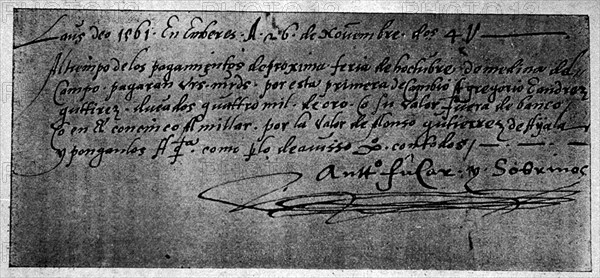 Laus deo 1561. En Enberes. A. 26. de Nouiembre. dos 4U
Al tiempo de los pagamentos de proxima feria de hoctubre. de medina del
Campo. pagaran Vrs. mrds. por esta primera de cambio A gregorio y andrez
gutierrez. ducados quattro mil. de oro. o su valor fuera de banco
con el cinco al millar. por la valor de alonso gutierrez de Ayala
y ponganlos A como p lo de auisso contados
Antto. fucar. y Sobrinos